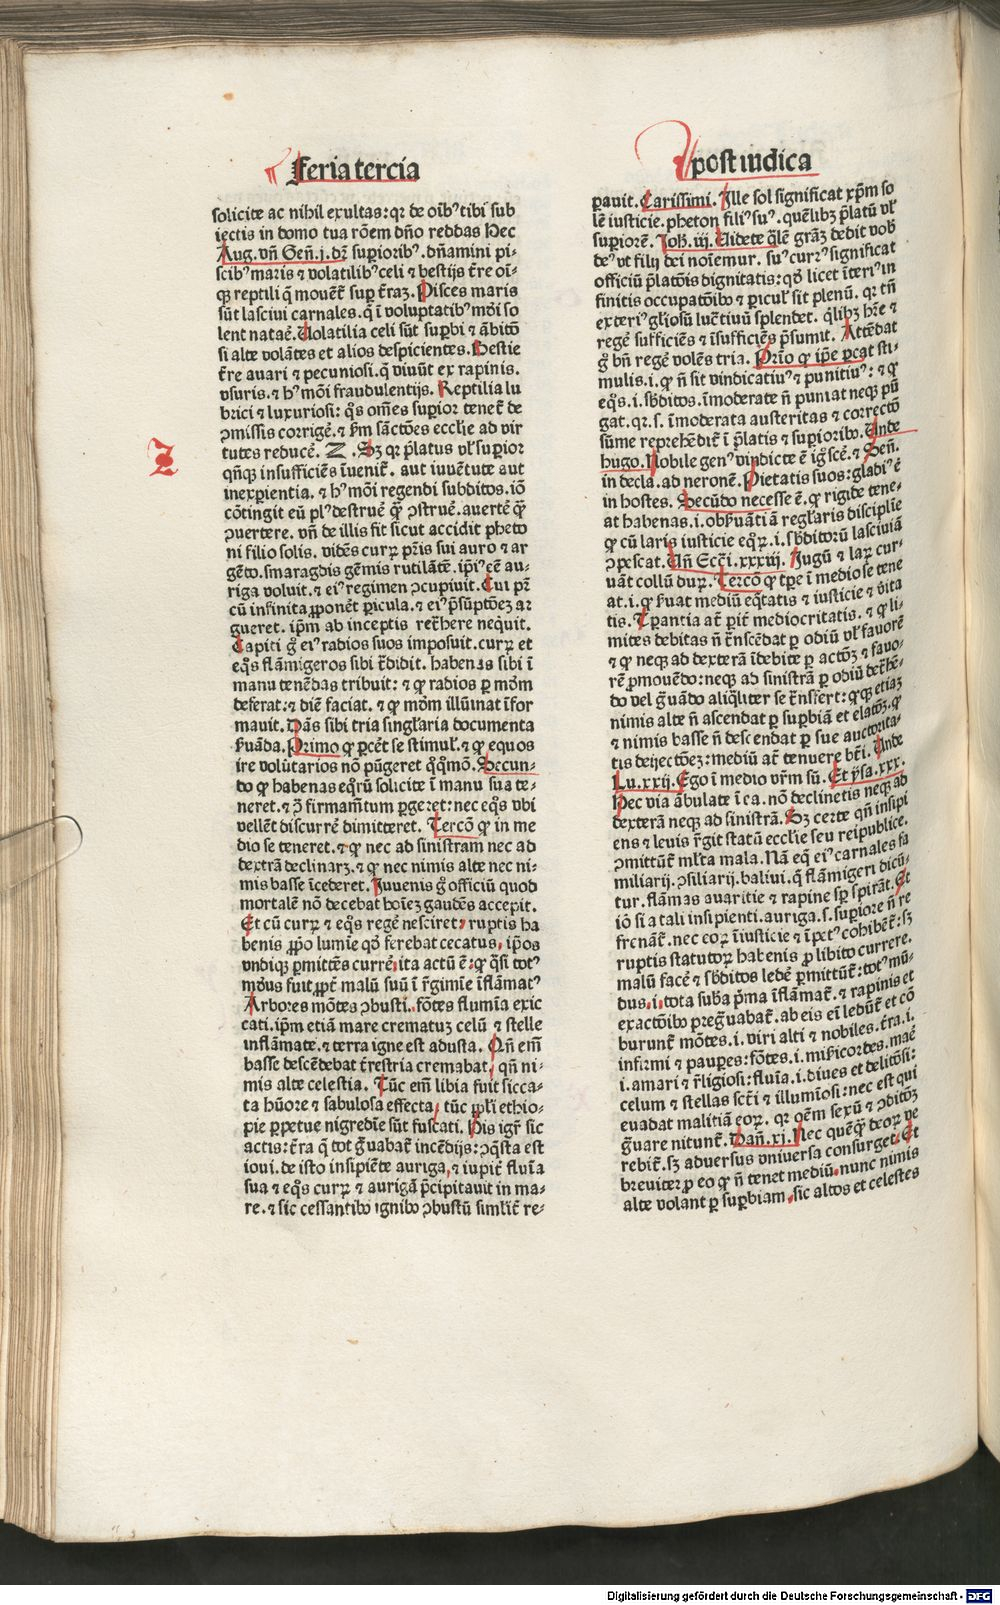 feria tercia
solicite ac nihil exultas: qꝛ de oībꝰ tibi sub
iectis in domo tua rōem dño reddas Hec
Aug. vñ Geñ. j. dꝛ supioribꝰ. dñamini pi-
scibꝰ maris ⁊ volatilibꝰ celi ⁊ bestijs t̄re oī-
qꝫ reptili q̄ mouet̄ sup t̄raꝫ. Pisces maris
sūt lasciui carnales. q̄ ī voluptatibꝰ mōi so
lent natae᷑. Uolatilia celi sūt supbi ⁊ ābitō
si alte volātes et alios despicientes. Bestie
t̄re auari ⁊ pecuniosi. q̄ viuūt ex rapinis.
vsuris. ⁊ hꝰ mōi fraudulentijs. Reptilia lu
brici ⁊ luxuriosi: qͦs om̄es supior tenet̄ de
ꝯmissis corrige᷑. ⁊ fm̄ sāctōes eccl̄ie ad vir
tutes reduce᷑. Z . Sꝫ qꝛ platus vl̄ supior
qñqꝫ insufficiēs īuenit̄. aut iuuētute aut
inexpientia. ⁊ hꝰ mōi regendi subditos. iō
cōtingit eū plꝰ destrue᷑ qͣꝫ ꝯstrue᷑. auerte᷑ qͣꝫ
ꝯuertere. vñ de illis fit sicut accidit pheto
ni filio solis. vidēs curꝝ pr̄is sui auro ⁊ ar
gēto. smaragdis gēmis rutilātē. ip̄iꝰ eē au-
riga voluit. ⁊ eiꝰ regimen ꝯcupiuit. Cui pr̄
cū infinita ꝓponēt picula. ⁊ eiꝰ p̄sūptōeꝫ ar
gueret. ip̄m ab inceptis ret̄here nequit.
Capiti gͦ eiꝰ radios suos imposuit. curꝝ et
eqͦs flāmigeros sibi t̄didit. habenas sibi ī
manu tenēdas tribuit: ⁊ qꝫ radios p mōm
deferat: ⁊ diē faciat. ⁊ qꝫ mōm illūinat īfor
mauit. Dās sibi tria singl̄aria documenta
fuāda. Primo qꝫ pcēt se stimul̄. ⁊ qꝫ equos
ire volūtarios nō pūgeret qͦqͦmō. Secun-
do qꝫ habenas eqͦrū solicite ī manu sua te-
neret. ⁊ ꝯ̄ firmam̄tum pgeret: nec eqͦs vbi
vellēt discurre᷑ dimitteret. Tercō qꝫ in me
dio se teneret. ⁊ qꝫ nec ad sinistram nec ad
dextrā declinarꝫ. ⁊ qꝫ nec nimis alte nec ni-
mis basse īcederet. Juuenis gͦ officiū quod
mortalē nō decebat hoīeꝫ gaudēs accepit.
Et cū curꝝ ⁊ eqͦs rege᷑ nesciret, ruptis ha
benis ꝓpo lumīe qͦd ferebat cecatus, ip̄os
vndiqꝫ pmittēs curre᷑, ita actū ē: qꝫ qͣsi totꝰ
mōus fuit ꝓpt̄ malū suū ī r̄gimīe īflāmatꝰ
Arbores mōtes ꝯbusti. fōtes flumīa exic
cati. ip̄m etiā mare crematuꝫ celū ⁊ stelle
inflāmate. ⁊ terra igne est adusta. Qñ em̄
basse descēdebat t̄restria cremabat, qñ ni-
mis alte celestia. Tūc em̄ libia fuit sicca-
ta hūore ⁊ sabulosa effecta, tūc ppl̄i ethio-
pie ppetue nigredīe sūt fuscati. His igr̄ sic
actis: t̄ra q̄ tot gͣuabat̄ incēdijs: ꝯqͣsta est
ioui. de isto insipiēte auriga, ⁊ iupit̄ fluīa
sua ⁊ eqͦs curꝝ ⁊ aurigā p̄cipitauit in ma-
re. ⁊ sic cessantibꝰ ignibꝰ ꝯbustū simlit̄ re-
post iudica
pauit. Carissimi. Ille sol significat xp̄m so
lē iusticie. pheton filiꝰ suꝰ. quēlibꝫ platū vl̄
supiorē. Joh̄. iij. Uidete qͣlē grāꝫ dedit vob
deꝰ vt filij dei noīemur. suꝰ curꝰ significat
officiū platōis dignitatis: qͦd licet īteriꝰ in
finitis occupatōibꝰ ⁊ picul̄ sit plenū. qꝛ tñ
exteriꝰ gl̄iosū lucͣtiuū splendet. qͥlibꝫ hr̄e ⁊
rege᷑ sufficiēs ⁊ īsufficiēs p̄sumit. Attēdat
gͦ bñ rege᷑ volēs tria. Prīo qꝫ ip̄e pcat sti-
mulis. i. qꝫ ñ sit vindicatiuꝰ ⁊ punitiuꝰ: ⁊ qꝫ
eqͦs. i. sb̄ditos. īmoderate ñ puniat neqꝫ pū
gat. qꝛ. s. īmoderata austeritas ⁊ correctō
sūme reprehēdit̄ ī platis ⁊ supioribꝰ. Unde
hugo. Nobile genꝰ vindicte ē igͦsce᷑. ⁊ Señ.
in decla. ad neronē. Pietatis suos: gladiꝰ ē
in hostes. Secūdo necesse ē. qꝫ rigide tene-
at habenas. i. obfuātiā regl̄aris discipl̄ie
qꝫ cū laris iusticie eqͦꝝ. i. sb̄ditorū lasciuiā
ꝯpescat. Uñ Ecc̄i. xxxiij. Jugū ⁊ larꝫ cur-
uāt collū duꝝ. Tercō qꝫ tpe ī medio se tene
at. i. qꝫ fuat mediū eqͣtatis ⁊ iusticie ⁊ vͥita
tis. Tpantia at̄ pit̄ mediocritatis. ⁊ qꝫ li-
mites debitas ñ t̄nscēdat p odiū vl̄ fauorē
⁊ qꝫ neqꝫ ad dexterā īdebite p actōꝫ ⁊ fauo-
rē pmouēdo: neqꝫ ad sinistrā p odiū det̄hē-
do vel gͣuādo aliqͣliter se t̄nsfert: qꝫ qꝫ etiaꝫ
nimis alte ñ ascendat p supbiā et elatōꝫ. qꝫ
⁊ nimis basse ñ descendat p sue auctorita-
tis deiectōeꝫ: mediū at̄ tenuere bt̄i. Unde
Lu. xxij. Ego ī medio vr̄m sū. Et ysa. xxx.
Hec via ābulate ī ea. nō declinetis neqꝫ ad
dexterā neqꝫ ad sinistrā. Sꝫ certe qñ insipi
ens ⁊ leuis r̄git statū eccl̄ie seu reipublice.
ꝯmittūt̄ ml̄ta mala. Nā eqͥ eiꝰ carnales fa
miliarij. ꝯsiliarij. baliui. q̄ flāmigeri dicū-
tur. flāmas auaritie ⁊ rapine sp̄ spirāt. Et
iō si a tali insipienti. auriga. s. supiore ñ re
frenāt̄. nec eoꝝ īiusticie ⁊ īpetꝰ cohibēt̄: sꝫ
ruptis statutoꝝ habenis p libito currere.
malū face᷑ ⁊ sb̄ditos lede᷑ pmittūt̄: totꝰ mū-
dus, i, tota suba p̄ma īflāmat̄. ⁊ rapinis et
exactōibꝰ pregͣuabat̄. ab eis ei ledūt̄ et cō
burunt̄ mōtes. i. viri alti ⁊ nobiles. t̄ra. i.
infirmi ⁊ paupes: fōtes. i. mis̄icordes. mae᷑
. i. amari ⁊ r̄ligiosi: fluīa. i. diues et delitōsi:
celum ⁊ stellas scti ⁊ illumiosi: nec est qui
euadat malitiā eoꝝ. qꝛ oēm sexū ⁊ ꝯditōꝫ
gͣuare nitunt̄. Dañ. xi. Nec quēqͣꝫ deoꝝ ve
rebit̄. sꝫ aduersus vniuersa consurget. Et
breuiter p eo qꝫ ñ tenet mediū, nunc nimis
alte volant p supbiam, sic altos et celestes
Z
Digitalisierung gefördert durch die Deutsche Forschungsgemeinschaft - DFG